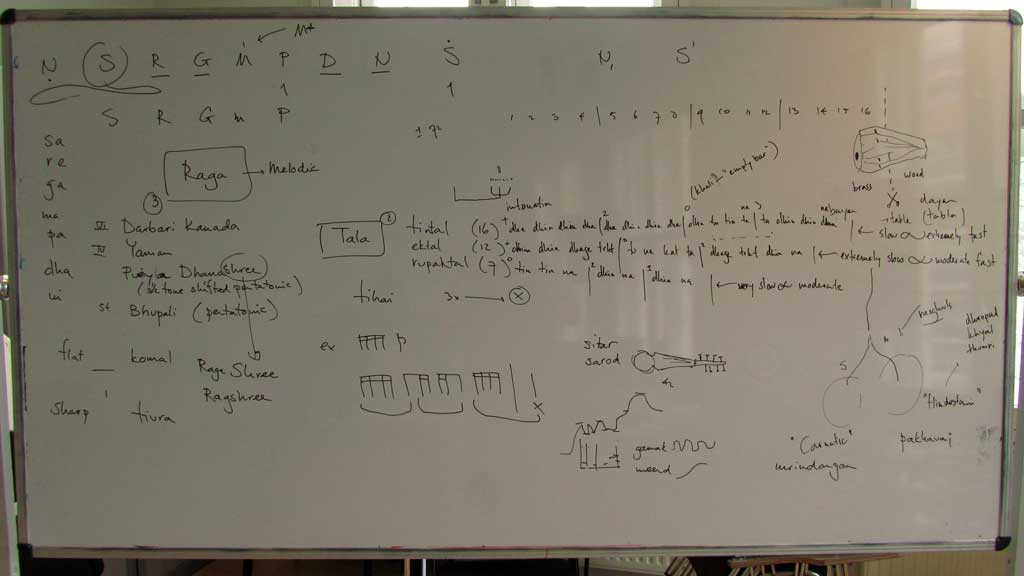 M+
N S R G M P D N S N S
1 1
S R G m P
1 2 3 4 | 5 6 7 8 | 9 10 11 12 | 13 14 15 16
sa
re
ga
ma
pa
dha
ni
Raga → Melodic
3
VI Darbari Kanada
IV Yaman
Puriya Dhanashree
st Bhupali (pentatonic)
Raga Shree
Ragshree
flat _ komal
sharp ' tivra
intonation
(khali = "empty bar")
Tala
2
tintal (16) + dha dhin dhin dha |2 dha dhin dhin dha |0 dha tin tin ta | ta dhin dhin dha | ← slow ~ extremely fast
ektal (12) dhin dhin dhage trkt | tu na kat ta | dhage trkt dhin na | ← extremely slow ~ moderate fast
rupaktal (7) 0 tin tin na | dhin na | dhin na | ← very slow ~ moderate
tihai 3x → X
ex
brass
wood
dayan
(tabla)
sitar
sarod
gamak
meend
S
N
dhrupad
khyal
thumri
"Hindustani"
"Carnatic"
mrindangan
pakhavaj